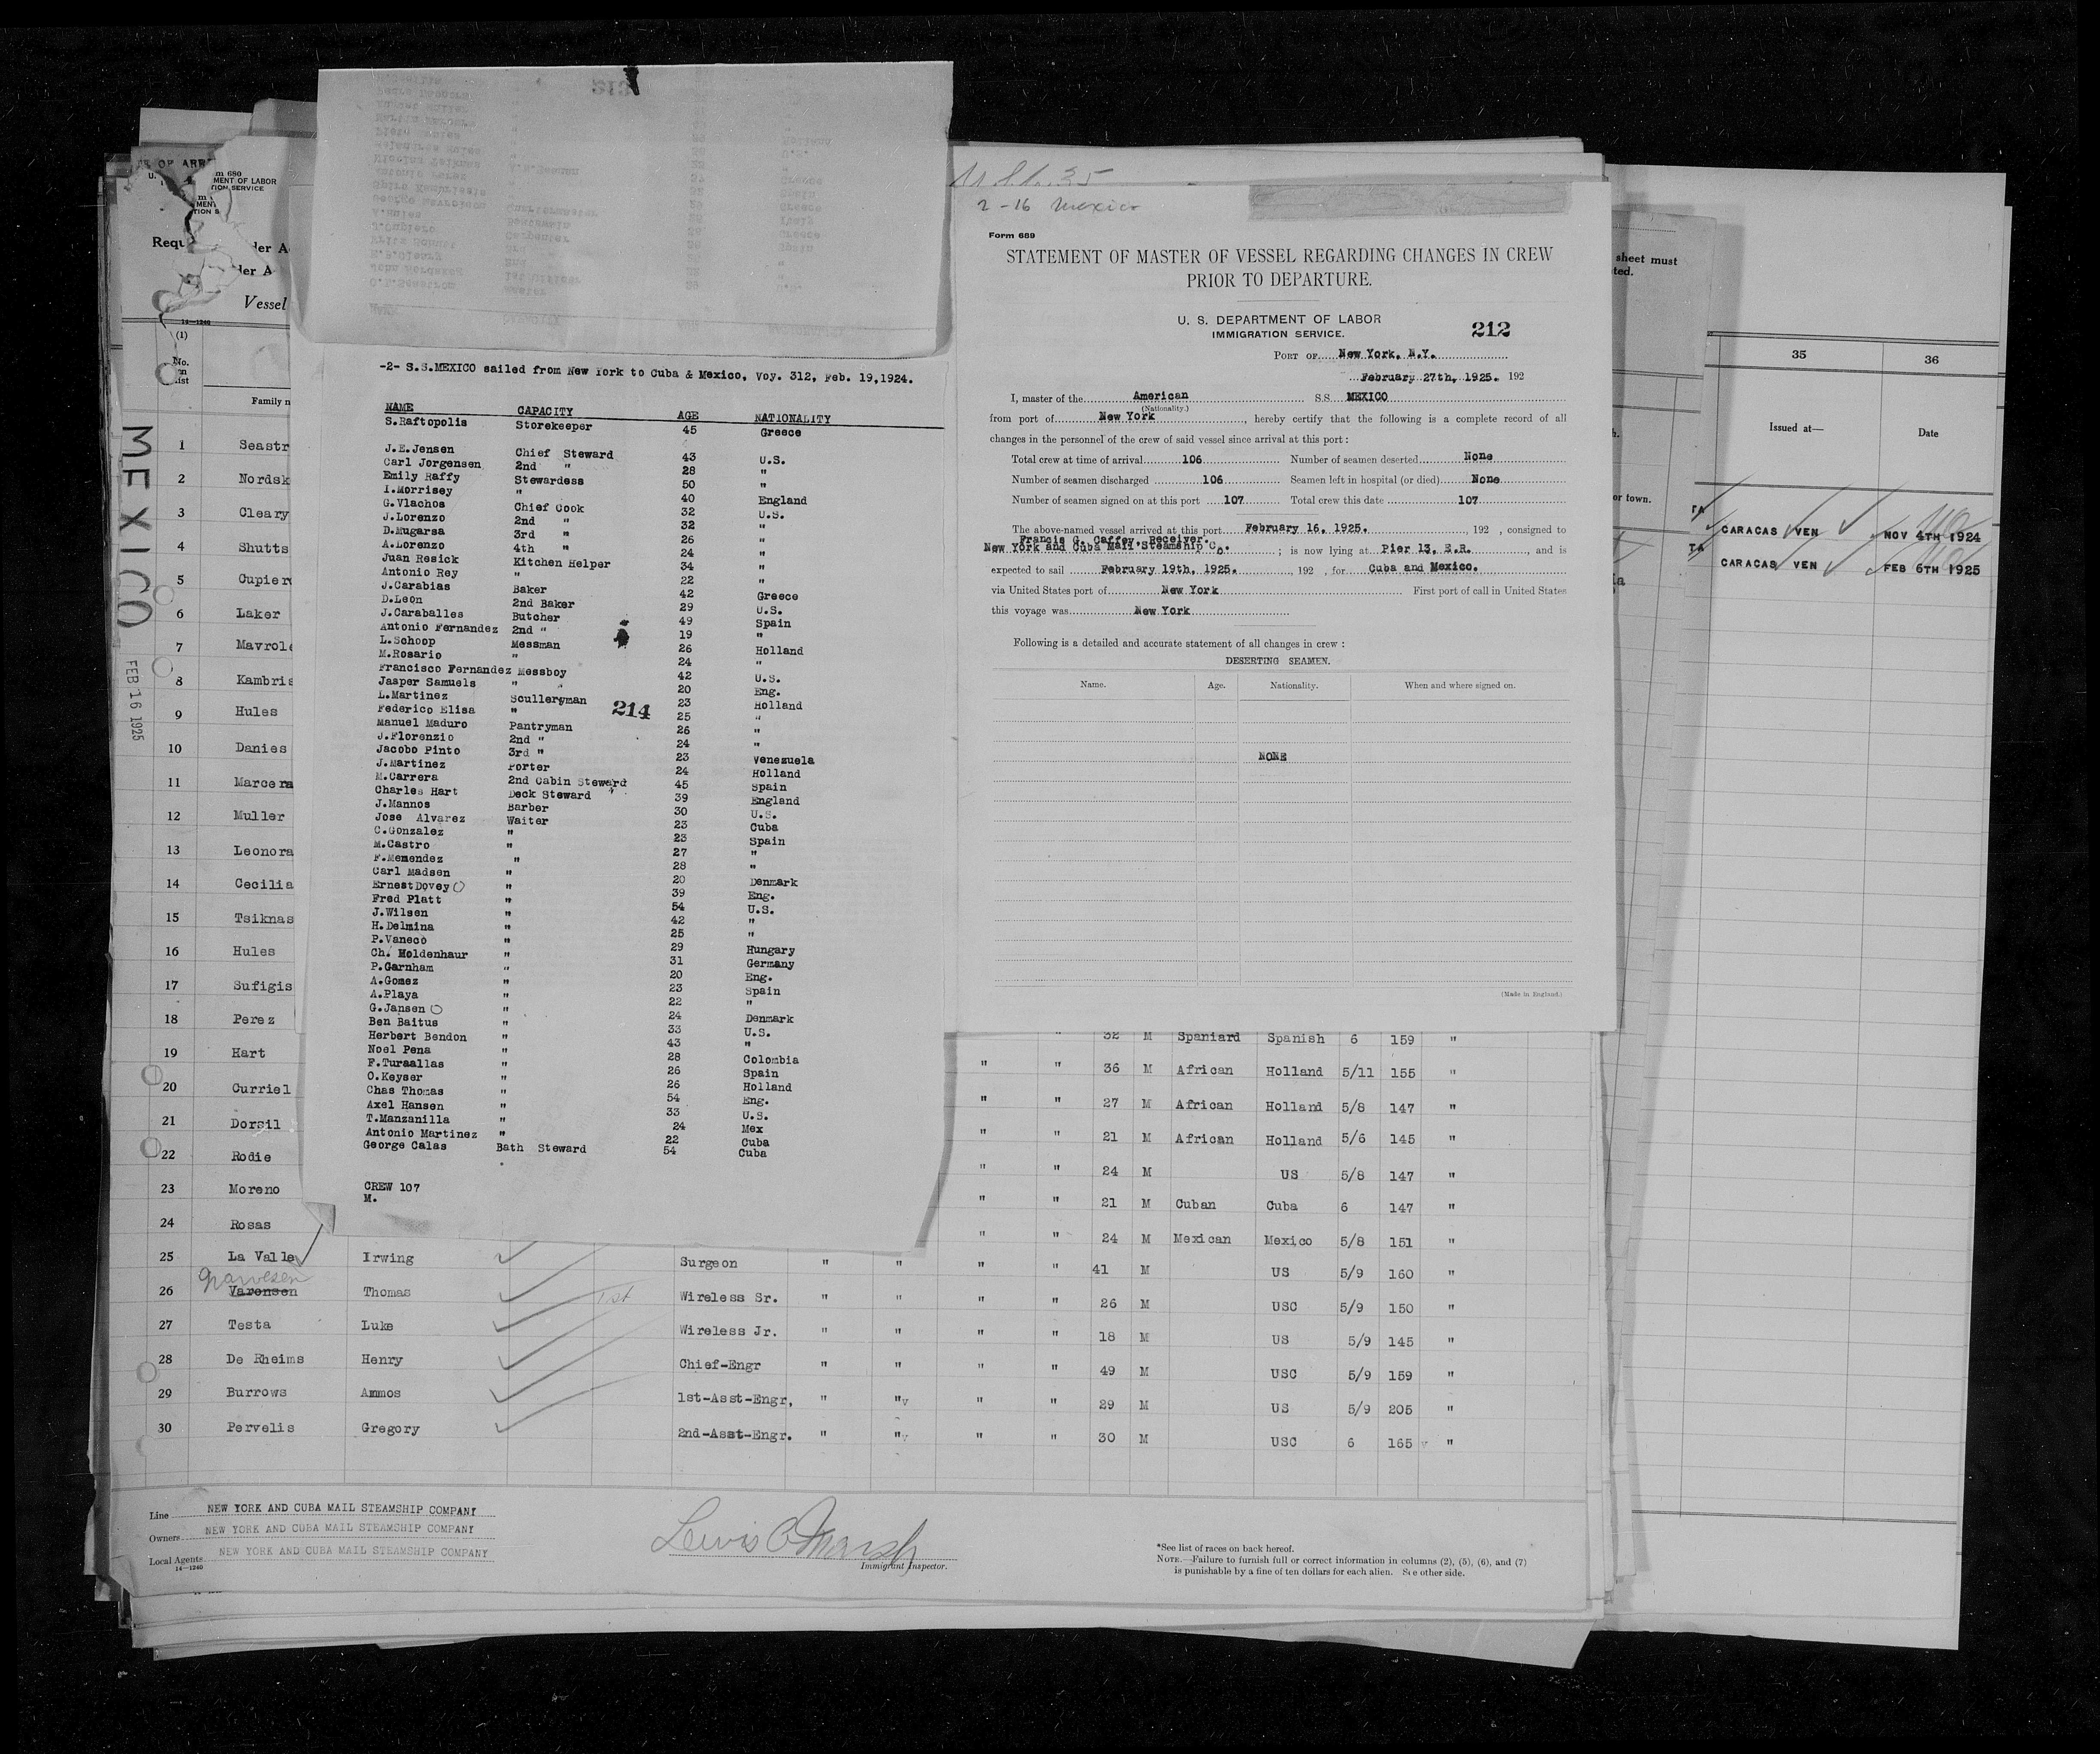 -2- S.S.MEXICO sailed from New York to Cuba & Mexico, Voy. 312, Feb. 19,1924.
NAME CAPACITY AGE NATIONALITY
S.Raftopolis Storekeeper 45 Greece
J.E.Jensen Chief Steward 43 U.S.
Carl Jorgensen 2nd " 28 "
Emily Raffy Stewardess 50 "
I.Morrisey " 40 England
G.Vlachos Chief Cook 32 U.S.
J.Lorenzo 2nd " 32 "
D.Mugarsa 3rd " 26 "
A.Lorenzo 4th " 24 "
Juan Resick Kitchen Helper 34 "
Antonio Rey " 22 "
J.Carabias Baker 42 Greece
D.Leon 2nd Baker 29 U.S.
J.Caraballes Butcher 49 Spain
Antonio Fernandez 2nd " 19 "
L.Schoop Messman 26 Holland
M.Rosario " 24 "
Francisco Fernandez Messboy 42 U.S.
Jasper Samuels " 20 Eng.
L.Martinez Sculleryman 23 Holland
Federico Elisa " 25 "
214
Manuel Maduro Pantryman 26 "
J.Florenzio 2nd " 24 "
Jacobo Pinto 3rd " 23 Venezuela
J.Martinez Porter 24 Holland
M.Carrera 2nd Cabin Steward 45 Spain
Charles Hart Deck Steward 39 England
J.Mannos Barber 30 U.S.
Jose Alvarez Waiter 23 Cuba
C.Gonzalez " 23 Spain
M.Castro " 27 "
F.Memendez " 28 "
Carl Madsen " 20 Denmark
Ernest Dovey " 39 Eng.
Fred Platt " 54 U.S.
J.Wilsen " 42 "
H.Delmina " 25 "
P.Vaneco " 29 Hungary
Ch. Moldenhaur " 31 Germany
P.Garnham " 20 Eng.
A.Gomez " 23 Spain
A.Playa " 22 "
G.Jansen " 24 Denmark
Ben Baitus " 33 U.S.
Herbert Bendon " 43 "
Noel Pena " 28 Colombia
F.Turaallas " 26 Spain
O.Keyser " 26 Holland
Chas Thomas " 54 Eng.
Axel Hansen " 33 U.S.
T.Manzanilla " 24 Mex
Antonio Martinez " 22 Cuba
George Calas Bath Steward 54 Cuba
CREW 107
M.
2-16 Mexico
Form 689
STATEMENT OF MASTER OF VESSEL REGARDING CHANGES IN CREW
PRIOR TO DEPARTURE.
U. S. DEPARTMENT OF LABOR
IMMIGRATION SERVICE.
212
PORT OF New York, N.Y.
February 27th, 1925. 192
I, master of the American S.S. MEXICO
(Nationality.)
from port of New York, hereby certify that the following is a complete record of all
changes in the personnel of the crew of said vessel since arrival at this port:
Total crew at time of arrival 106 Number of seamen deserted None
Number of seamen discharged 106 Seamen left in hospital (or died) None
Number of seamen signed on at this port 107 Total crew this date 107
The above-named vessel arrived at this port February 16, 1925., 192 , consigned to
Francis G. Caffey, Receiver.
New York and Cuba Mail Steamship Co. ; is now lying at Pier 13, E.R., and is
expected to sail February 19th, 1925., 192 , for Cuba and Mexico.
via United States port of New York First port of call in United States
this voyage was New York
Following is a detailed and accurate statement of all changes in crew :
DESERTING SEAMEN.
Name. Age. Nationality. When and where signed on.
NONE
(Made in England.)
sheet must
or town.
35 36
Issued at— Date
CARACAS VEN NOV 4TH 1924
CARACAS VEN FEB 6TH 1925
OF ARR
m 680
MENT OF LABOR
TION SERVICE
Requ der A
der A
Vessel
14—1240
(1)
No.
Family n
MEXICO
FEB 16 1925
1 Seastr
2 Nordsk
3 Cleary
4 Shutts
5 Cupier
6 Laker
7 Mavrole
8 Kambris
9 Hules
10 Danies
11 Marcera
12 Muller
13 Leonora
14 Cecilia
15 Tsiknas
16 Hules
17 Sufigis
18 Perez 32 M Spaniard Spanish 6 159 "
19 Hart " " 36 M African Holland 5/11 155 "
20 Curriel " " 27 M African Holland 5/8 147 "
21 Dorsil " " 21 M African Holland 5/6 145 "
22 Rodie " " 24 M US 5/8 147 "
23 Moreno " " 21 M Cuban Cuba 6 147 "
24 Rosas " " 24 M Mexican Mexico 5/8 151 "
25 La Valle Irwing Surgeon " " " 41 M US 5/9 160 "
26 Varensen Thomas 1st Wireless Sr. " " " " 26 M USC 5/9 150 "
27 Testa Luke Wireless Jr. " " " " 18 M US 5/9 145 "
28 De Rheims Henry Chief-Engr " " " " 49 M USC 5/9 159 "
29 Burrows Ammos 1st-Asst-Engr, " " " " 29 M US 5/9 205 "
30 Pervelis Gregory 2nd-Asst-Engr. " " " " 30 M USC 6 165 "
Line NEW YORK AND CUBA MAIL STEAMSHIP COMPANY
Owners NEW YORK AND CUBA MAIL STEAMSHIP COMPANY
Local Agents NEW YORK AND CUBA MAIL STEAMSHIP COMPANY
14—1240
Lewis C Marsh
Immigrant Inspector.
*See list of races on back hereof.
NOTE.—Failure to furnish full or correct information in columns (2), (5), (6), and (7)
is punishable by a fine of ten dollars for each alien. See other side.